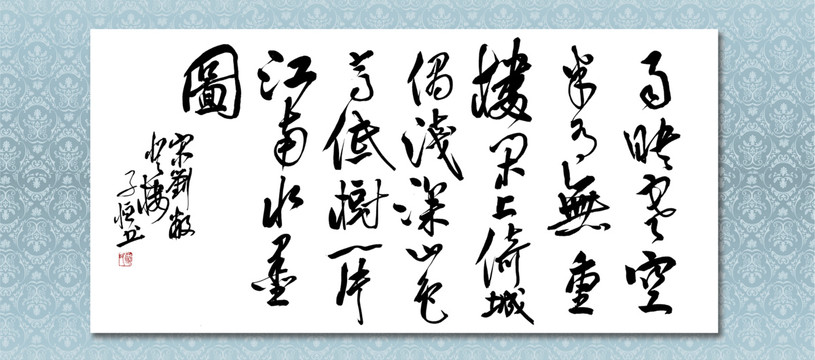 雨映寒空
半有無重
樓閑上倚城
隅淺深山色
高低樹一片
江南水墨
圖
宋劉敞
登樓
子恒书